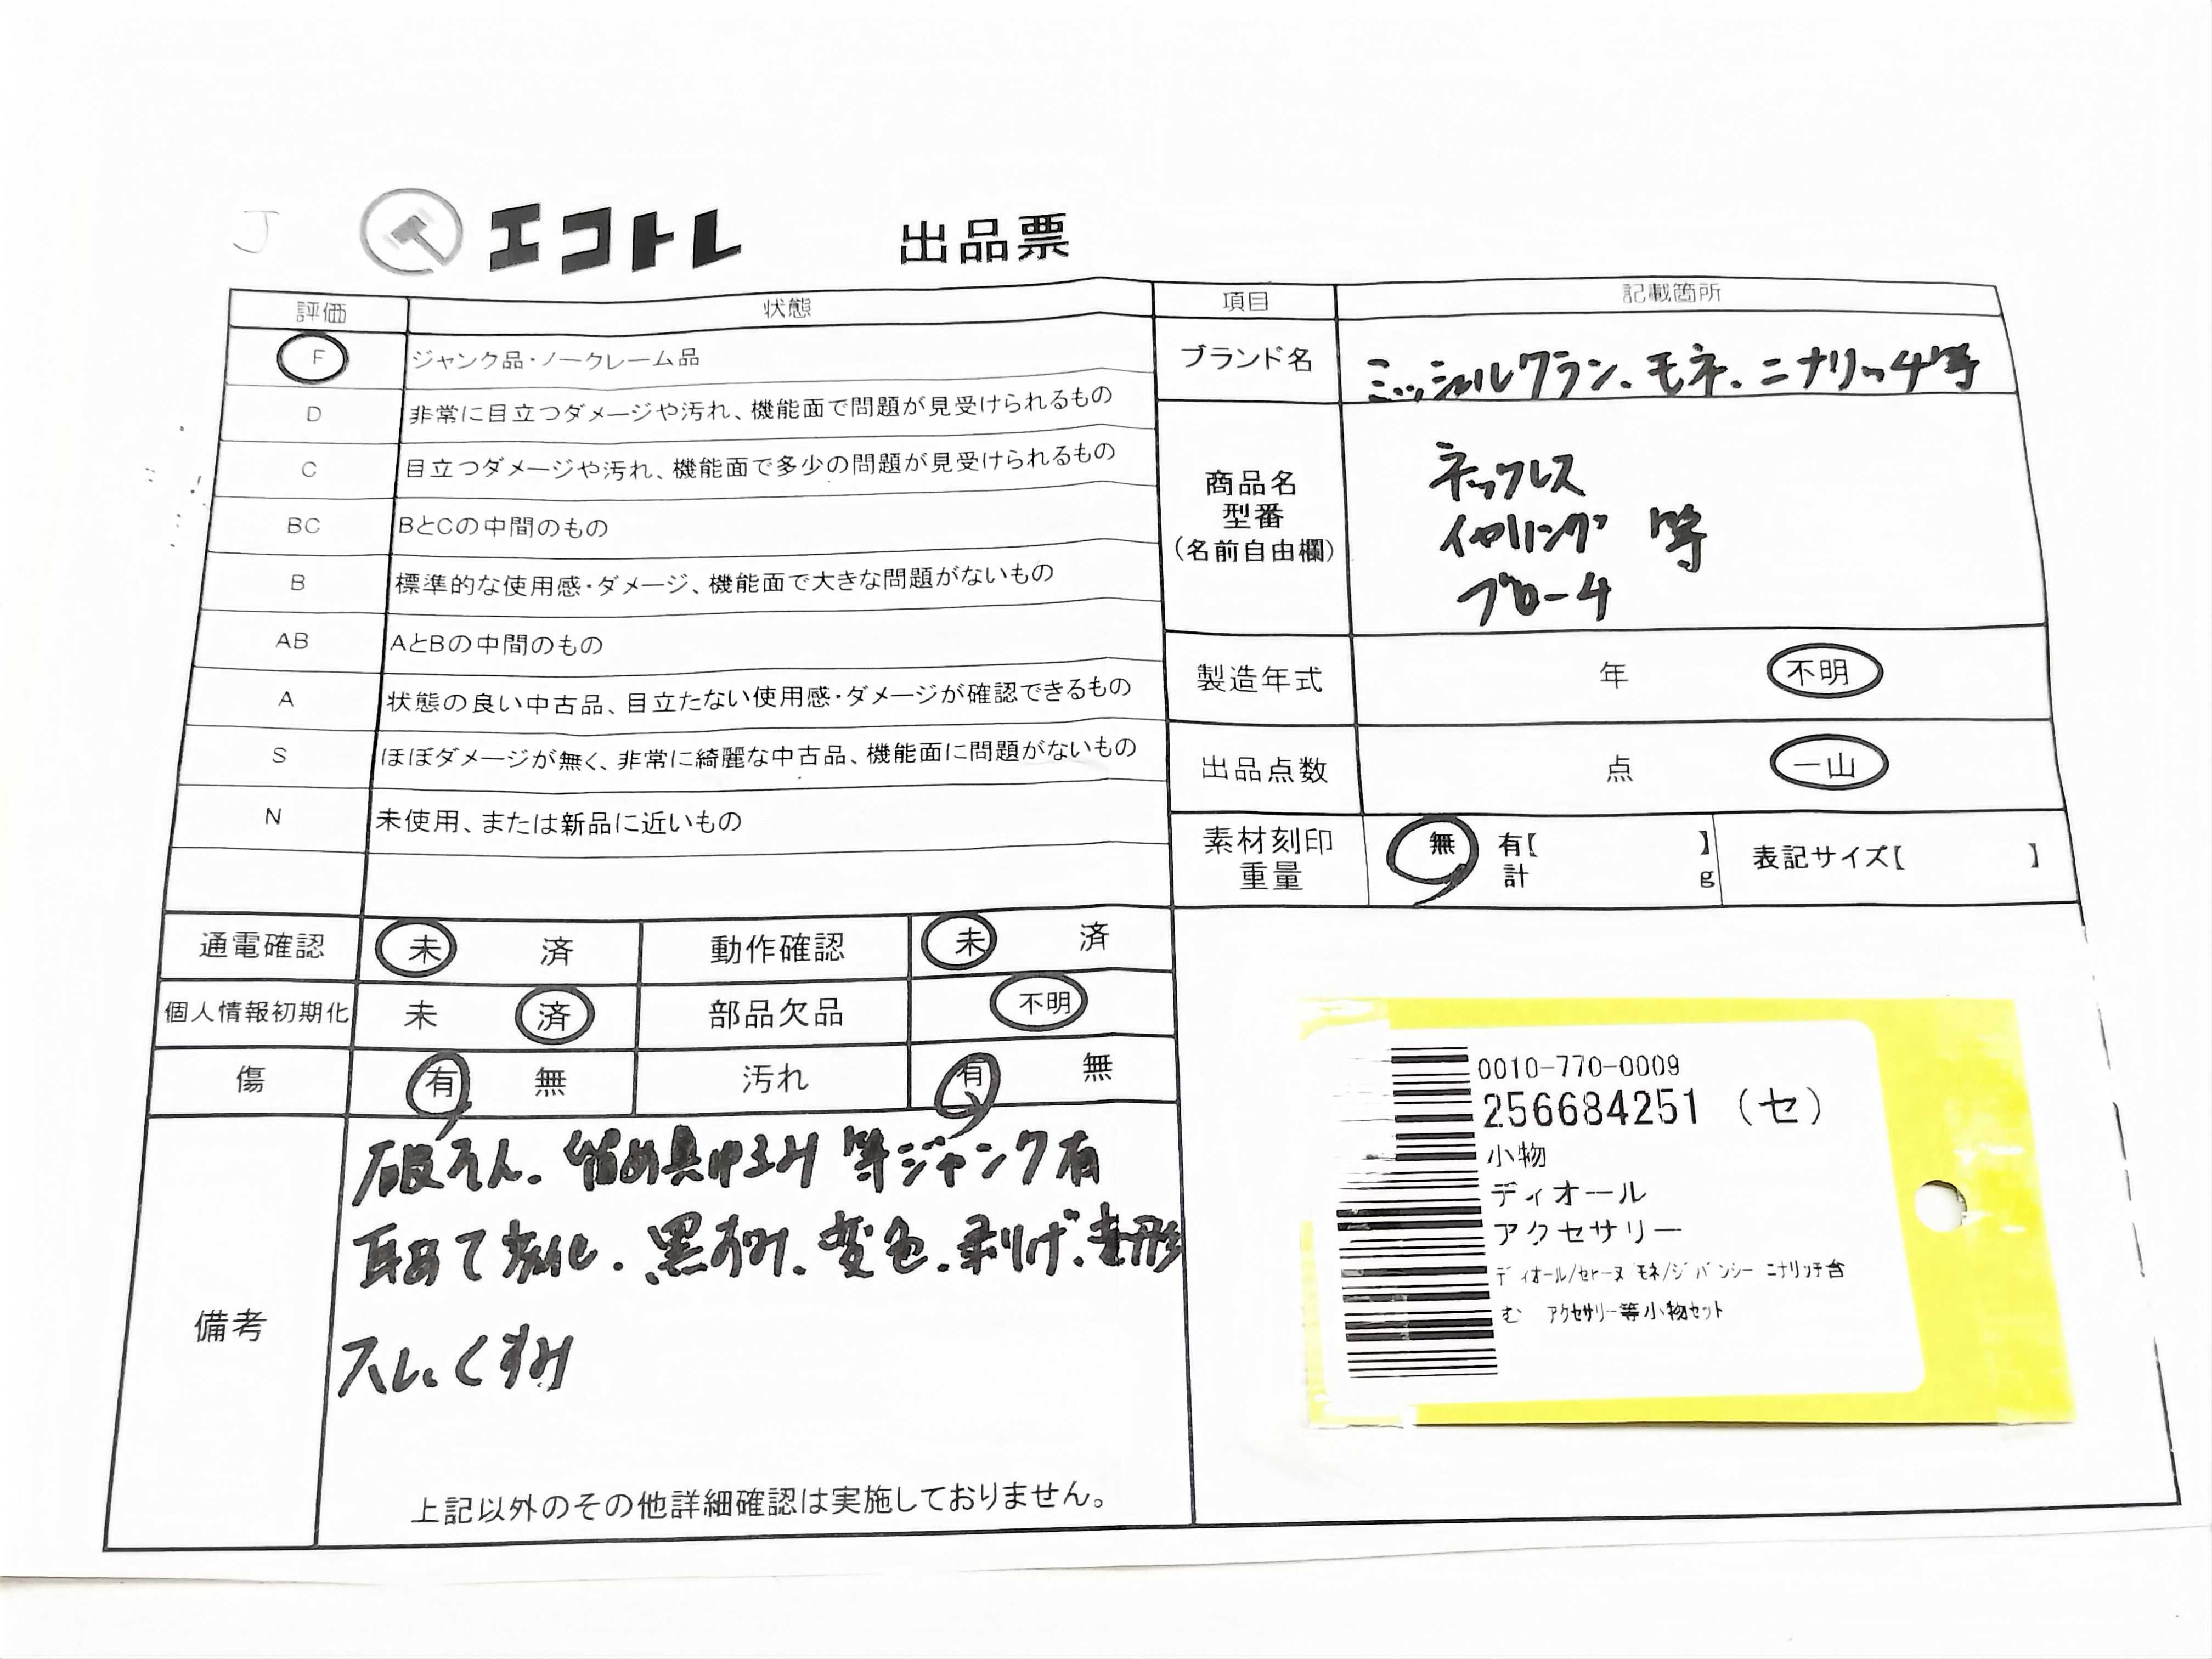 J エコトレ 出品票
評価 状態 項目 記載箇所
F ジャンク品・ノークレーム品
D 非常に目立つダメージや汚れ、機能面で問題が見受けられるもの
C 目立つダメージや汚れ、機能面で多少の問題が見受けられるもの
BC BとCの中間のもの
B 標準的な使用感・ダメージ、機能面で大きな問題がないもの
AB AとBの中間のもの
A 状態の良い中古品、目立たない使用感・ダメージが確認できるもの
S ほぼダメージが無く、非常に綺麗な中古品、機能面に問題がないもの
N 未使用、または新品に近いもの
ブランド名 ミッシェルクラン、モネ、ニナリッチ等
商品名
型番
(名前自由欄)
ネックレス
イヤリング 等
ブローチ
製造年式 年 不明
出品点数 点 一山
素材刻印 無 有【 】
重量 計 g
表記サイズ【 】
通電確認 未 済 動作確認 未 済
個人情報初期化 未 済 部品欠品 不明
傷 有 無 汚れ 有 無
備考
破そん、留め具ゆるみ 等ジャンク有
黒ずみ、変色、剥げ、変形
スレ、くすみ
上記以外のその他詳細確認は実施しておりません。
0010-770-0009
256684251 (セ)
小物
ディオール
アクセサリー
ディオール/セリーヌ モネ/ジバンシー ニナリッチ含
む アクセサリー等小物セット